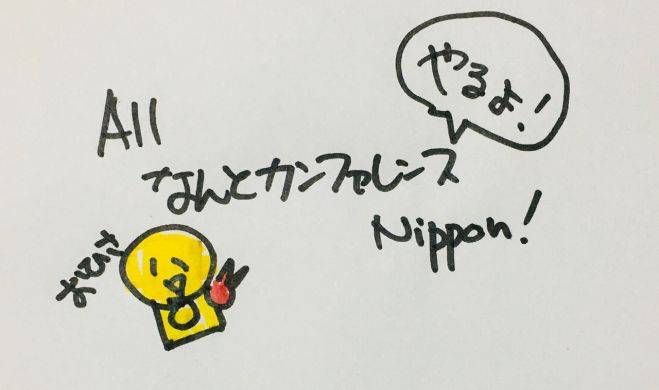 やるよ!
All
なんとカンファレンス
Nippon!
おひさ